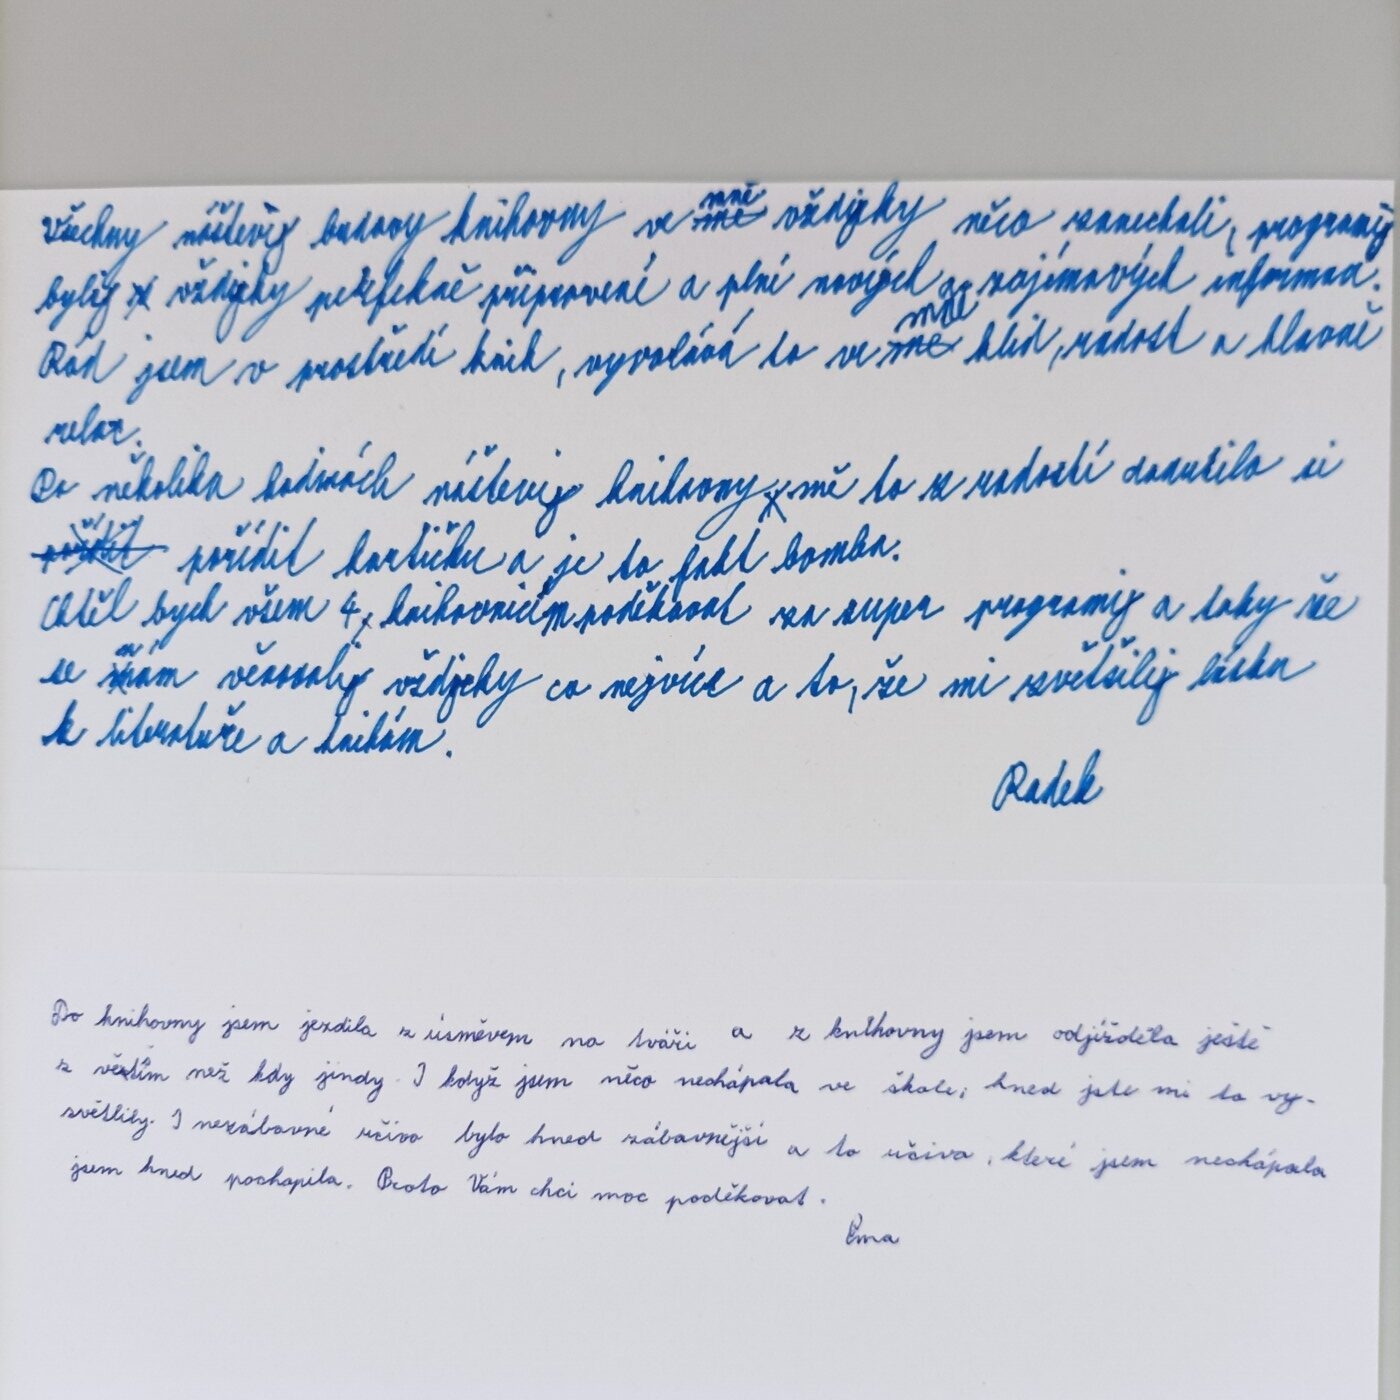 Všechny návštěvy budovy knihovny ve mně vždycky něco zanechali, programy
byly vždycky perfekně připravení a plní nových a zajímavých informan.
Rád jsem v prostředí knih, vyvolává to ve mně klid, radost a hlavně
relax.
Po několika hodinách návštevy knihovny mě to s radostí donutilo si
pořídit kartičku a je to fakt bomba.
Chtěl bych všem 4 knihovnicím poděkovat za super programy a taky že
se nám věnovaly vždycky co nejvíce a to, že mi zvětšily lásku
k literatuře a knihám.
Radek
Do knihovny jsem jezdila z úsměvem na tváři a z knihovny jsem odjížděla ještě
s větším než kdy jindy. I když jsem něco nechápala ve škole, hned jste mi to vy-
světlily. I nezábavné učivo bylo hned zábavnější a to učivo, které jsem nechápala
jsem hned pochopila. Proto Vám chci moc poděkovat.
Ema